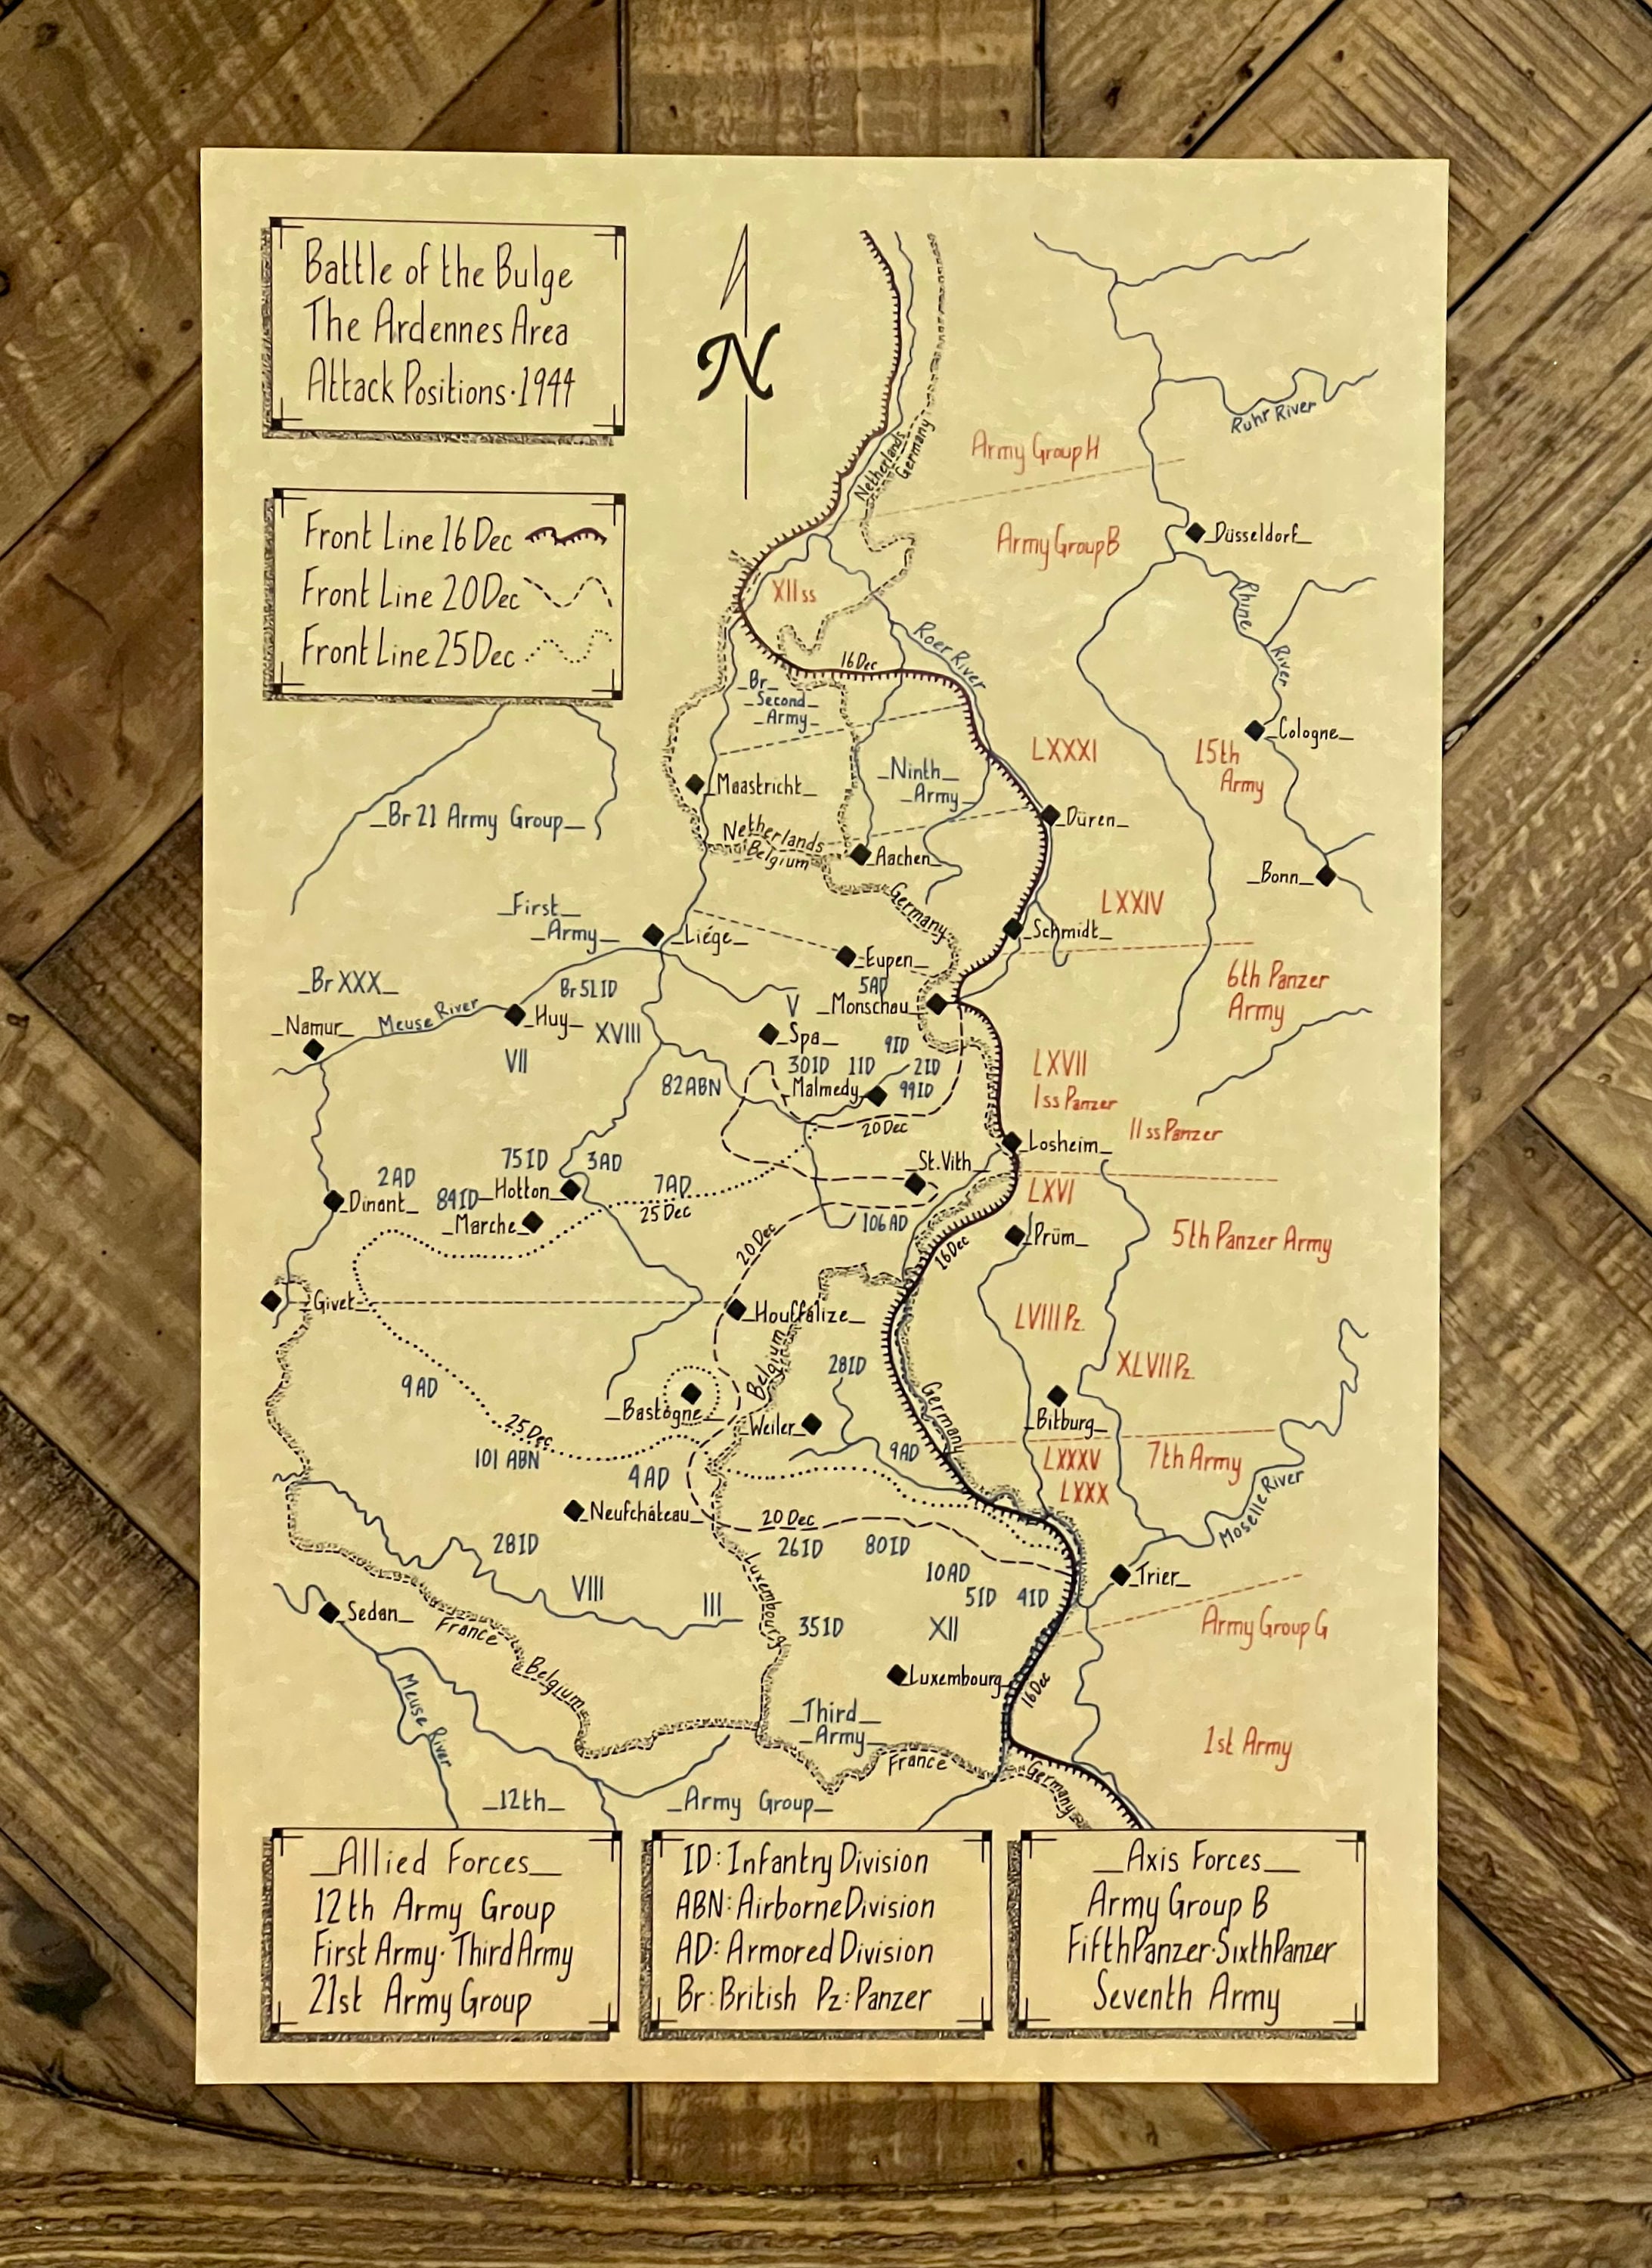 Battle of the Bulge
The Ardennes Area
Attack Positions·1944
N
Front Line 16 Dec
Front Line 20 Dec
Front Line 25 Dec
Ruhr River
Netherlands
Germany
Army Group H
Army Group B
Düsseldorf
XII ss
Rhine
River
Roer River
16 Dec
Br
Second
Army
Cologne
LXXXI
15th
Army
Ninth
Army
Maastricht
Düren
Br 21 Army Group
Netherlands
Belgium
Aachen
Bonn
Germany
LXXIV
First
Army
Liége
Schmidt
Eupen
5AD
6th Panzer
Army
Br XXX
Br 51 ID
V
Monschau
Meuse River
Huy
XVIII
Namur
Spa
9ID
VII
30ID
1ID
2ID
LXVII
82ABN
Malmedy
99ID
1ss Panzer
20 Dec
11ssPanzer
Losheim
75ID
3AD
St.Vith
2AD
84ID
Hotton
7AD
LXVI
Dinant
25 Dec
106AD
Marche
20 Dec
16 Dec
Prüm
5th Panzer Army
Givet
Houffalize
LVIII Pz.
Belgium
28ID
XLVII Pz.
9AD
Germany
Bastogne
Weiler
Bitburg
25 Dec
101 ABN
9AD
LXXXV
7th Army
4AD
LXXX
Moselle River
Neufcháteau
20 Dec
28ID
26ID
80ID
10AD
Trier
VIII
III
Luxembourg
5ID
4ID
Sedan
35ID
XII
Army Group G
France
Belgium
Luxembourg
16 Dec
Meuse River
Third
Army
1st Army
France
Germany
12th
Army Group
Allied Forces
12th Army Group
First Army·Third Army
21st Army Group
ID: Infantry Division
ABN: Airborne Division
AD: Armored Division
Br: British Pz: Panzer
Axis Forces
Army Group B
Fifth Panzer·Sixth Panzer
Seventh Army